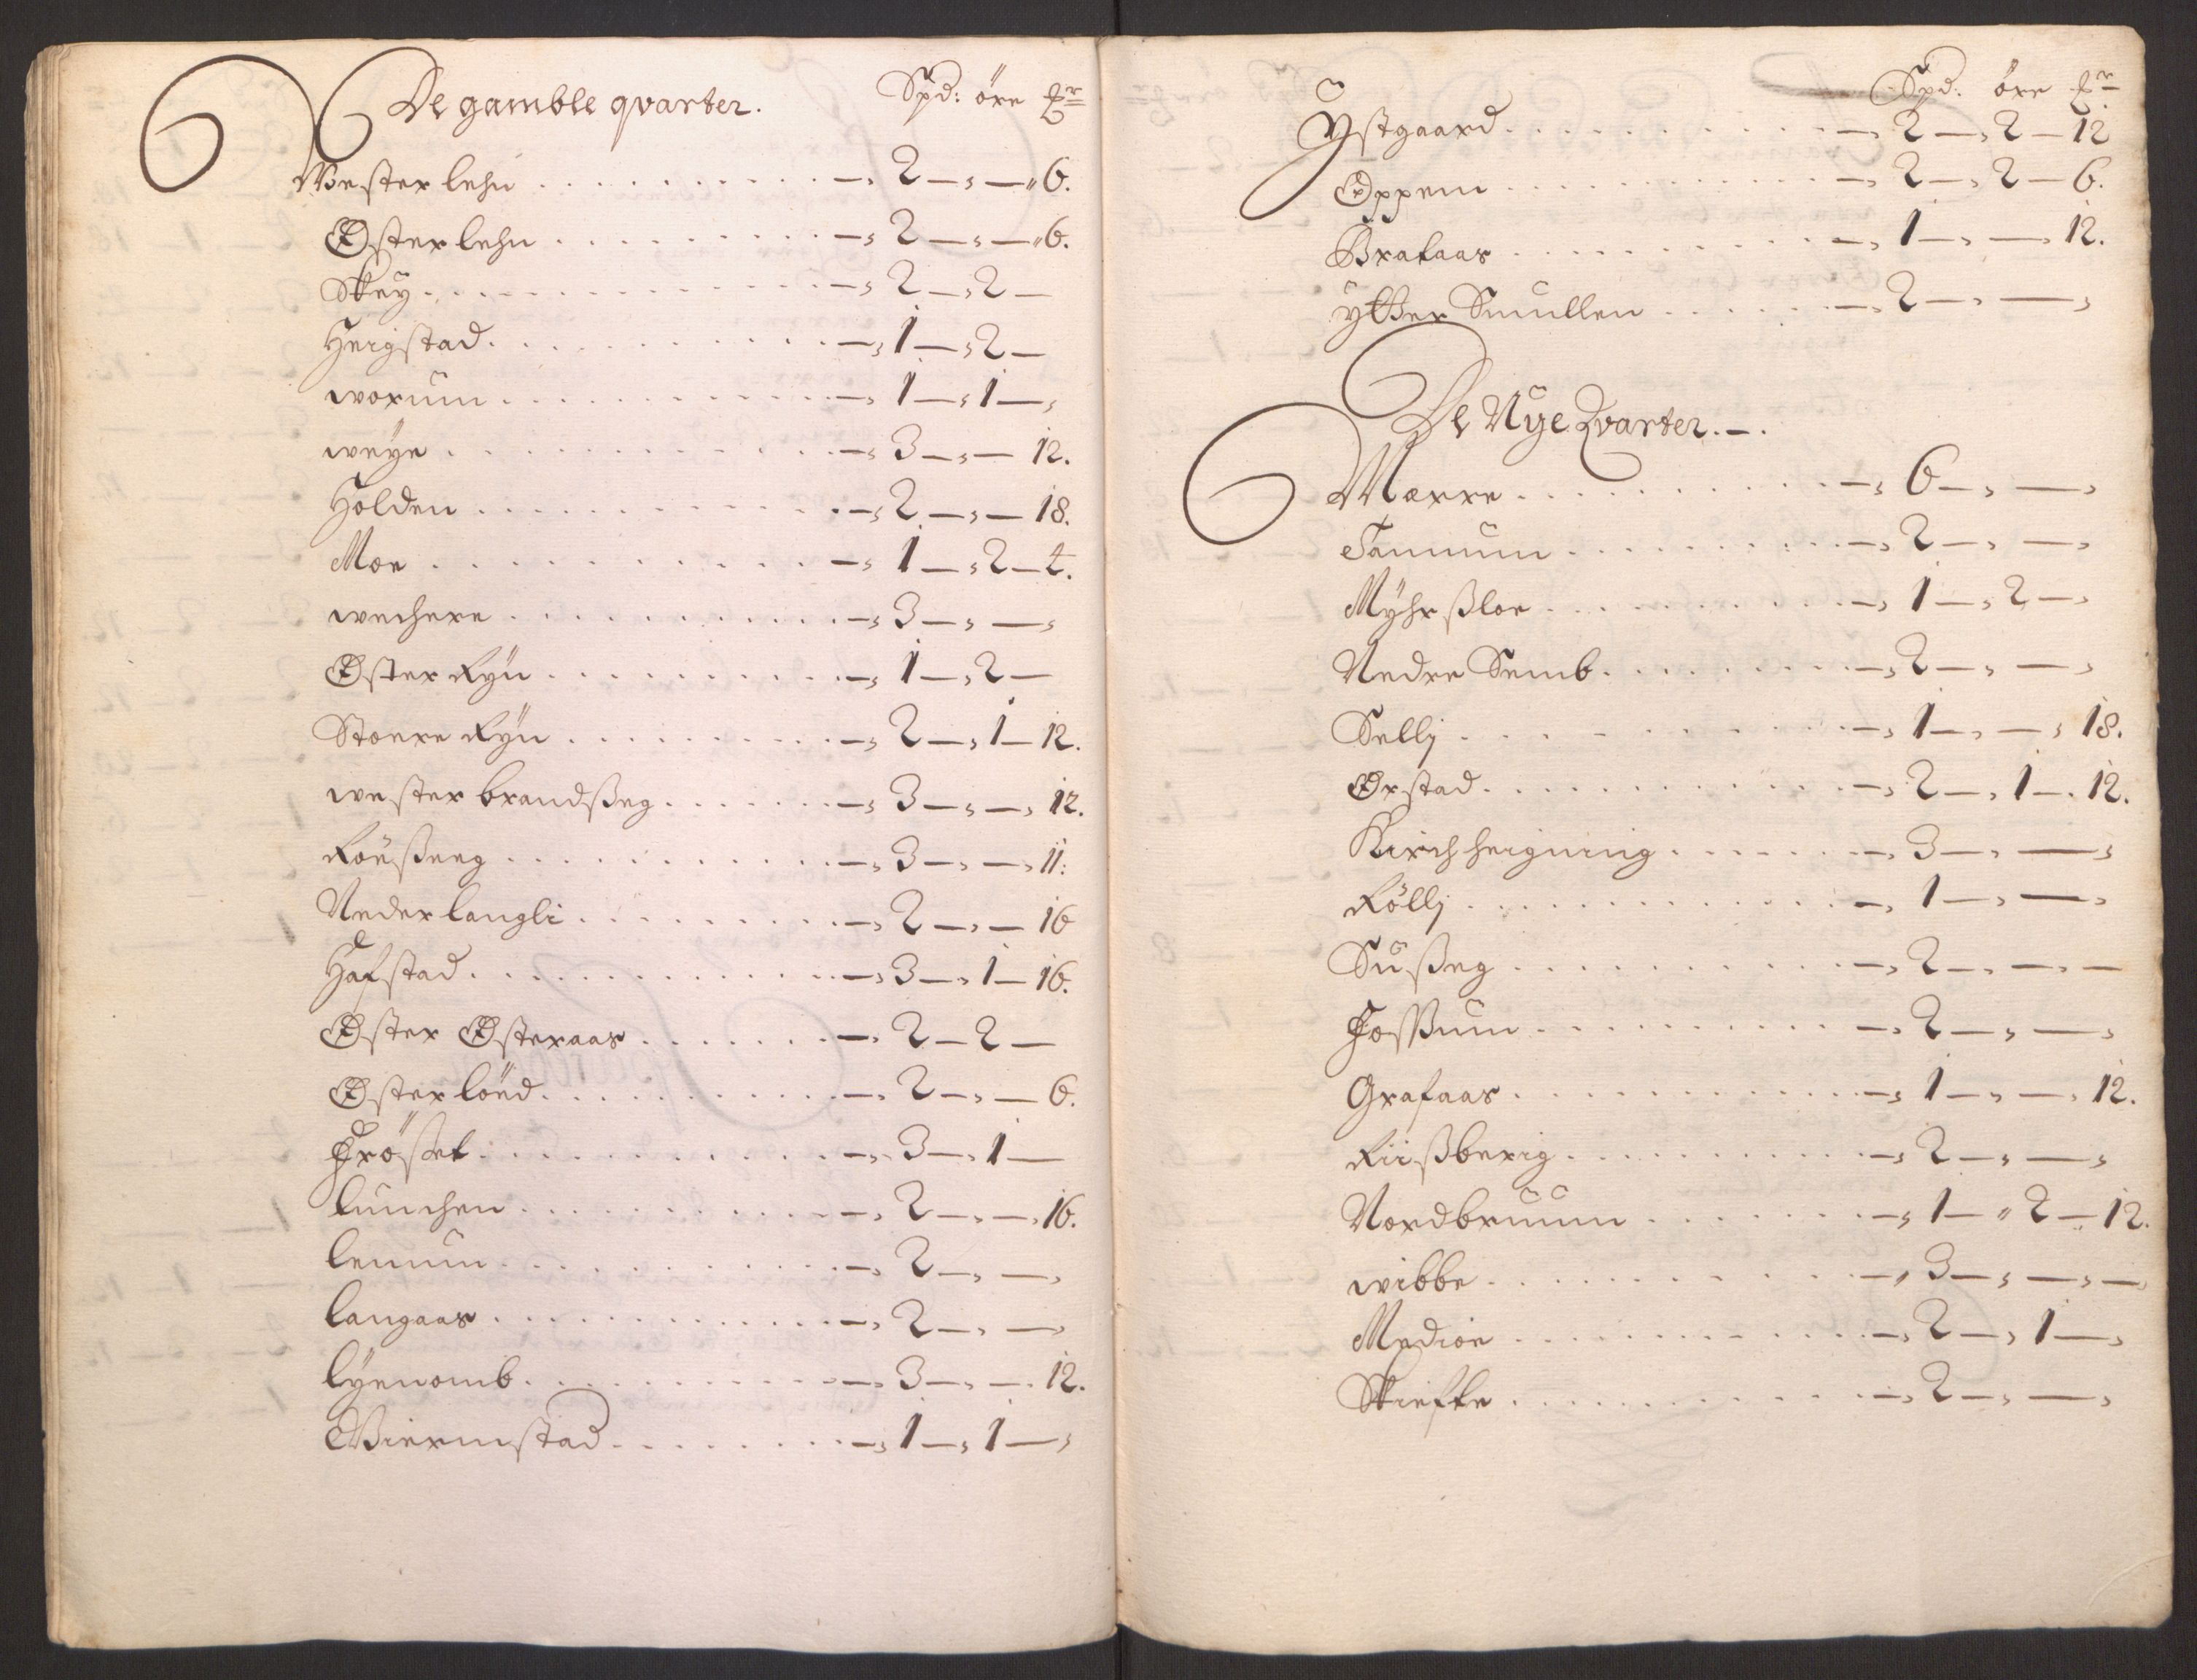 De gamble qvarter. Spd: öre
Wester lehn . . . 2 — , — " 6.
Øster lehn . . . 2 — , — " 6.
Skey . . . 2 — , 2 —
Heigstad . . . 1 — , 2 —
worum . . . 1 — , 1 — ,
weye . . . 3 — , — 12.
Holden . . . 2 — , — 18.
Moe . . . 1 — , 2 — 4.
wechere . . . 3 — , — ,
Øster Ryn . . . 1 — , 2 —
Stoere Ryn . . . 2 — , 1 — 12.
wester brandßeg . . . 3 — , — , 12.
Roeußeeg . . . 3 — , — , 11:
Neder langli . . . 2 — , — 16
Hafstad . . . 3 — , 1 — 16.
Øster Østeraas . . . 2 — 2 —
Øster löed . . . 2 — , — 6.
Frößet . . . 3 — , 1 —
lunchen . . . 2 — , — , 16.
lenum . . . 2 — , — ,
langaas . . . 2 — , — ,
lyenomb . . . 3 — , — . 12.
Wiermstad . . . 1 — , 1 — ,
Spd: öre
Ystgaard . . . 2 — , 2 — 12
Oppem . . . 2 — , 2 — 6.
Brataas . . . 1 — , — , 12.
ytter Smullen . . . 2 — , — ,
De Nye Qvarter . — .
Mærre . . . 6 — , — ,
Tannum . . . 2 — , — ,
Myhrßloe . . . 1 — , 2 — ,
Nedre Semb . . . 2 — , — ,
Sellj . . . 1 — , — , 18.
Ørstad . . . 2 — , 1 — . 12.
Kirch heigning . . . 3 — , — ,
Röllj . . . 1 — , — ,
Sußeg . . . 2 — , — , —
Foßum . . . 2 — , — ,
Grafaas . . . 1 — , — , 12.
Riißberig . . . 2 — , — ,
Nordbruum . . . 1 — " 2 — 12.
wibbe . . . 3 — , — , —
Medioe . . . 2 — , 1 — ,
Skiefte . . . 2 — , — ,